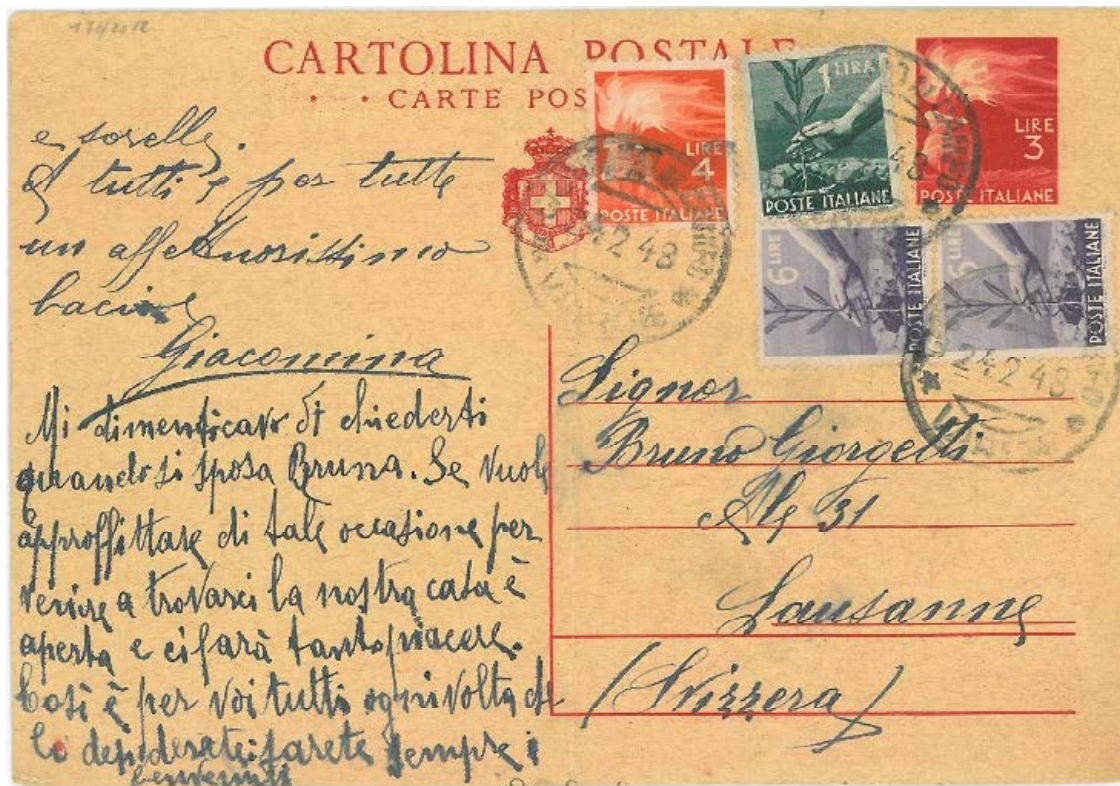 170/2012
CARTOLINA POSTALE
CARTE POS
LIRE
4
POSTE ITALIANE
1 LIRA
POSTE ITALIANE
LIRE
3
POSTE ITALIANE
6 LIRE
POSTE ITALIANE
6 LIRE
POSTE ITALIANE
2.2.48
48
24.2.48
e sorelle.
A tutti e per tutte
un affettuosissimo
bacione
Giacomina
Mi dimenticavo di chiederti
quando si sposa Bruna. Se vuole
approffittare di tale occasione per
venire a trovarci la nostra casa è
aperta e ci farà tanto piacere.
Così è per voi tutti ogni volta che
lo desiderate: sarete sempre i
benvenuti
Signor
Bruno Giorgetti
Ale 31
Lausanne
(Svizzera)